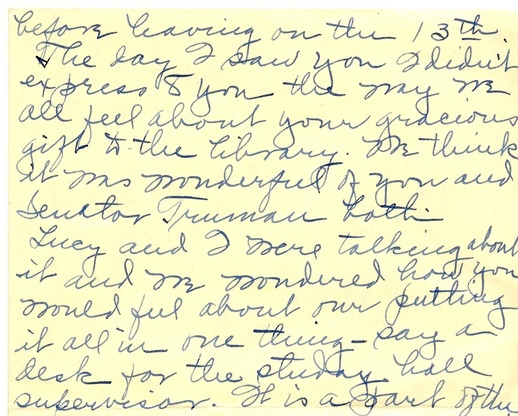 before leaving on the 13th.
The day I saw you I didn't
express to you the way we
all feel about your gracious
gift to the library. We think
it was wonderful of you and
Senator Truman both.
Lucy and I were talking about
it and we wondered how you
would feel about our putting
it all in one thing - say a
desk for the studay hall
supervisor. It is a part of the